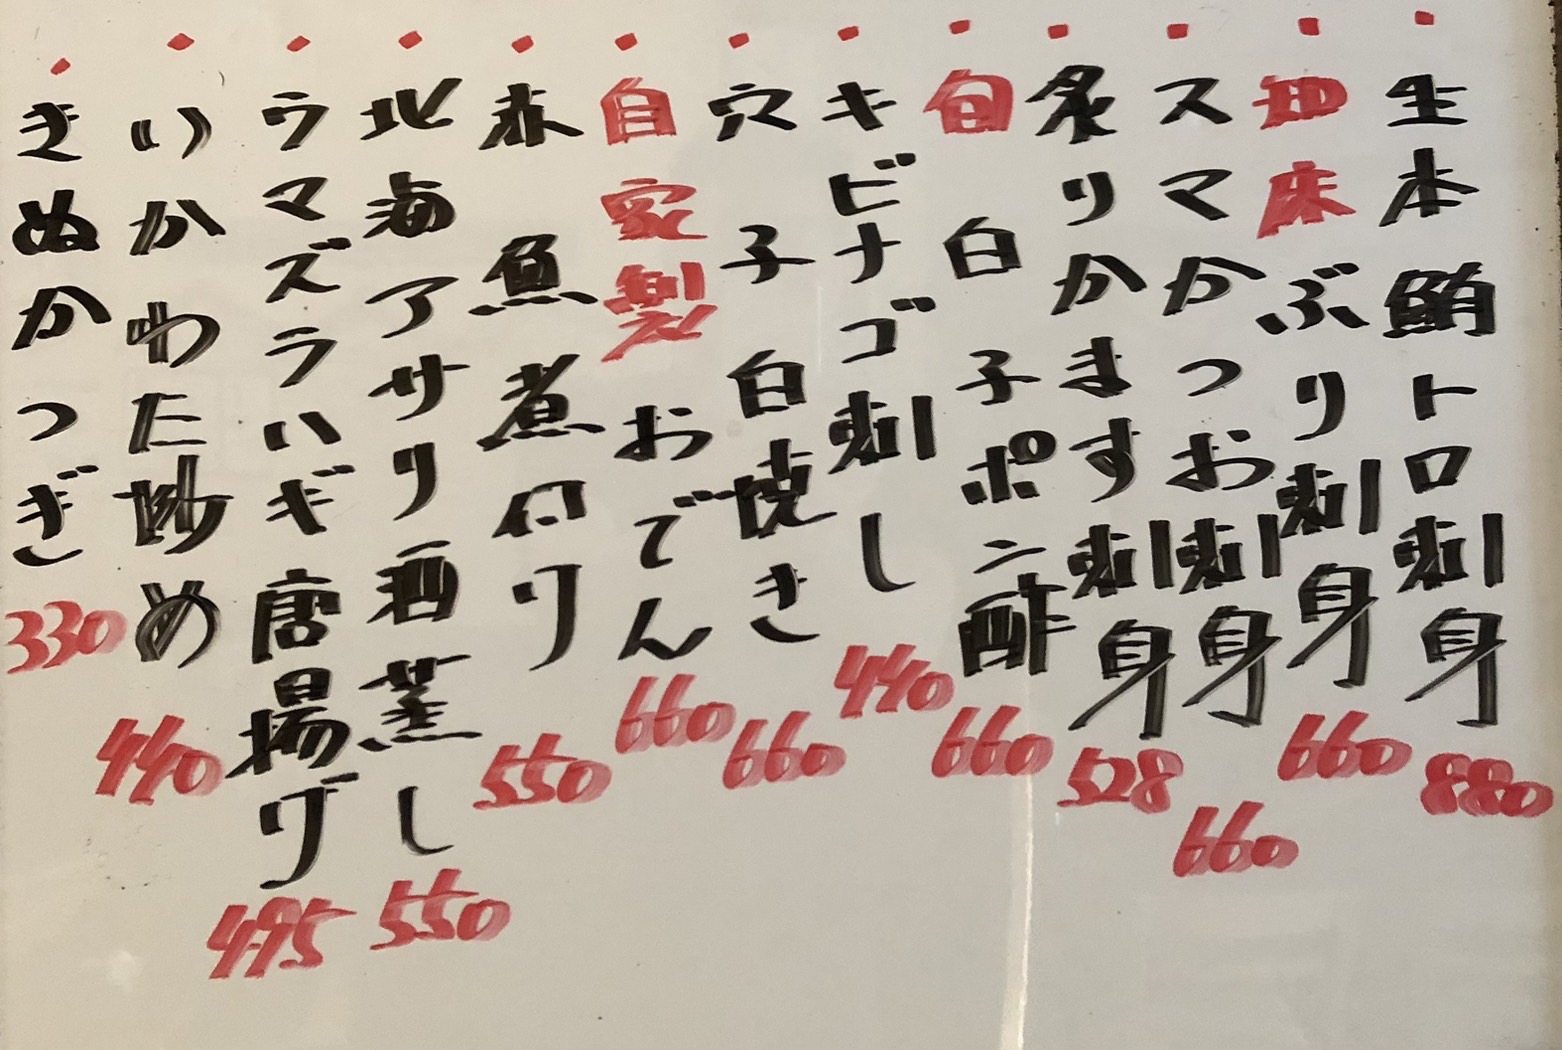 ・生本鮪トロ刺身 880
・知床ぶり刺身 660
・スマかつお刺身 660
・炙りかます刺身 528
・旬白子ポン酢 660
・キビナゴ刺し 440
・穴子白焼き 660
・自家製おでん 660
・赤魚煮付け 550
・北海アサリ酒蒸し 550
・ウマズラハギ唐揚げ 495
・いかわた炒め 440
・きぬかつぎ 330